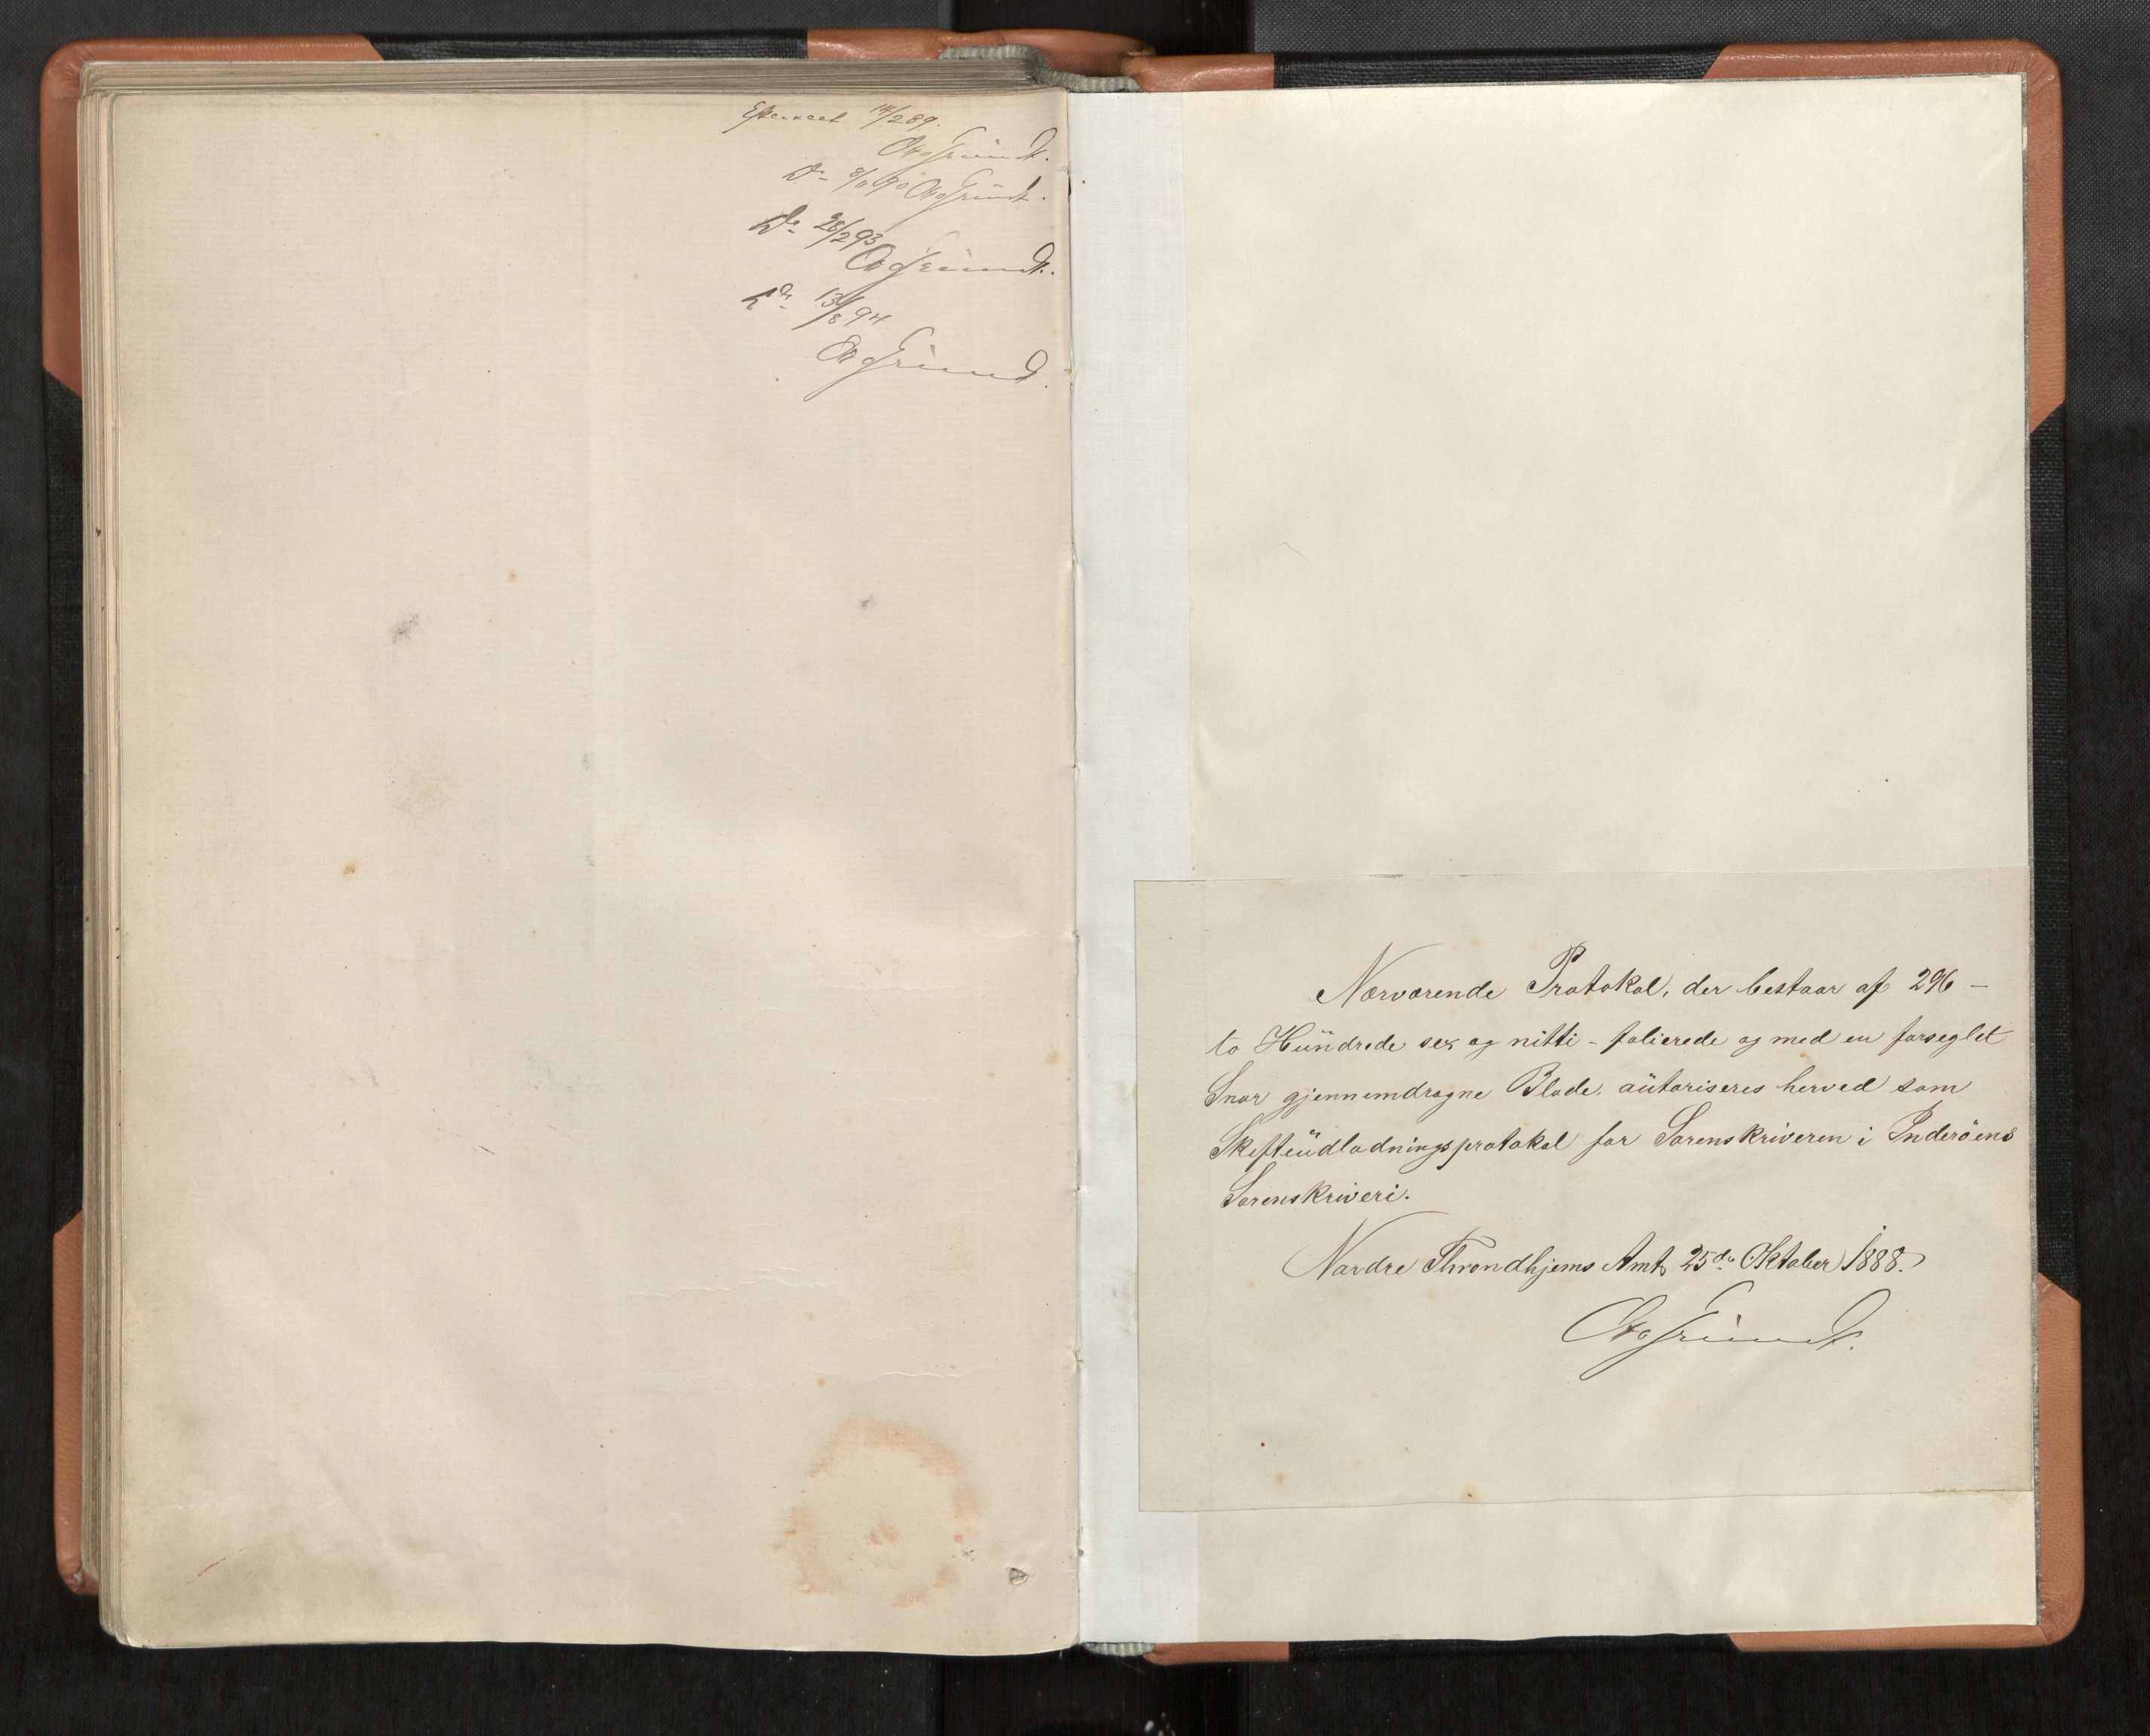 Efterseet 14/2 89.
Otto Grundt.
Do 8/11 90 Otto Grundt.
Do 28/2 93
Otto Grundt.
Do 13/8 94
Otto Grundt.
Nærværende Protokol, der bestaar af 296 –
to Hundrede sex og nitti – folierede og med en forseglet
Snor gjennemdragne Blade, autoriseres herved som
Skifteudlodningsprotokol for Sorenskriveren i Inderöens
Sorenskriveri.
Nordre Throndhjems Amt, 25de Oktober 1888.
Otto Grundt.